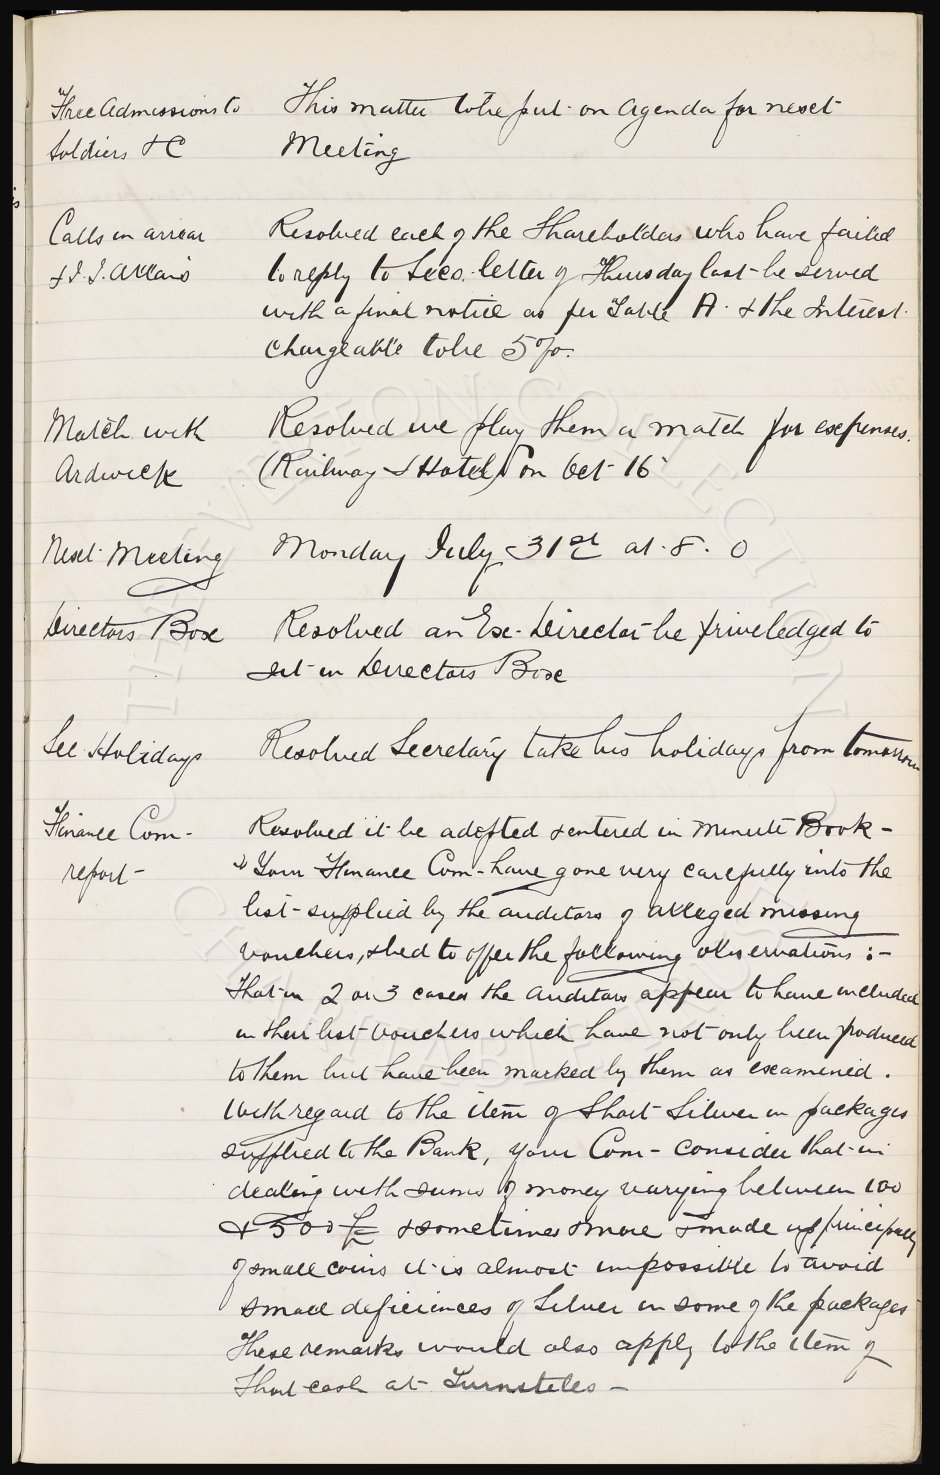 Free Admissions to This matter to be put on Agenda for next
Soldiers &C Meeting
Calls in arrear Resolved each of the Shareholders who have failed
to reply to Secs. letter of Thursday last be served
with a final notice as per Table A. & the Interest
chargeable to be 5%.
Match with Resolved we play them a match for expenses.
Ardwick (Railway & Hotel) on Oct 16
Next Meeting Monday July 31st at 8. 0
Directors Box Resolved an Ex-Director be priveledged to
sit in Directors Box
Sec Holidays Resolved Secretary take his holidays from tomorrow
Finance Com- Resolved it be adopted & entered in Minute Book -
report - "Your Finance Com- have gone very carefully into the
list supplied by the auditors of alleged missing
vouchers, & bed to offer the following observations :-
That in 2 or 3 cases the Auditors appear to have included
in their list vouchers which have not only been produced
to them but have been marked by them as examined.
With regard to the item of Short Silver in packages
supplied to the Bank, your Com- consider that in
dealing with sums of money varying between 100
& 500 £ & sometimes more & made up principally
of small coins it is almost impossible to avoid
small deficiences of Silver in some of the packages
These remarks would also apply to the item of
Short cash at Turnstiles -
THE EVERTON COLLECTION
CHARITABLE TRUST